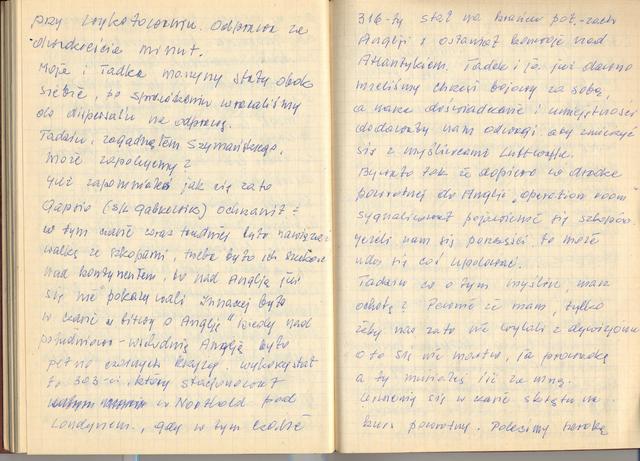 przy
Odprawa za
dwadzieścia minut.
Moja i Tadka maszyny stały obok
siebie, po sprawdzeniu wracaliśmy
do dispersalu na odprawę.
Tadziu, zagadnąłem Szymańskiego,
może zapolujemy?
Już zapomniałeś jak cię za to
Gapcio (S/L Gabszewicz) ochrzanił?
W tym czasie coraz trudniej było nawiązać
walkę ze szkopami, trzeba było ich szukać
nad kontynentem, bo nad Anglią już
się nie pokazywali. Inaczej było
w czasie "bitwy o Anglię" kiedy nad
południowo-wschodnią Anglią było
pełno czarnych krzyży. Wykorzystał
to 303-ci, który stacjonował
w Northold pod
Londynem, gdy w tym czasie
316-ty stał na krańcu poł.-zach.
Anglji i osłaniał konwoje nad
Atlantykiem. Tadek i ja już dawno
mieliśmy chrzest bojowy za sobą,
a nasze doświadczenie i umiejętności
dodawały nam odwagi aby zmierzyć
się z myśliwcami Luftwaffe.
Bywało tak że dopiero w drodze
powrotnej do Anglji "operation room"
sygnalizował pojawienie się szkopów.
Jeżeli nam się poszczęści to może
uda się coś upolować.
Tadziu co o tym myślisz, masz
ochotę? Pewnie że mam, tylko
żeby nas za to nie wylali z dywizjonu
o to się nie martw, ja prowadzę
a ty musiałeś iść za mną.
Urwiemy się w czasie skrętu na
kurs powrotny. Polecimy